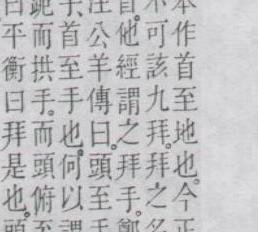 本作首至地也。今正
不可該九拜。拜之名
首。他經謂之拜手。鄭
注公羊傳曰。頭至手
首至手也。何以謂
跪而拱手。而頭俯至
曰平衡曰拜是也。頭